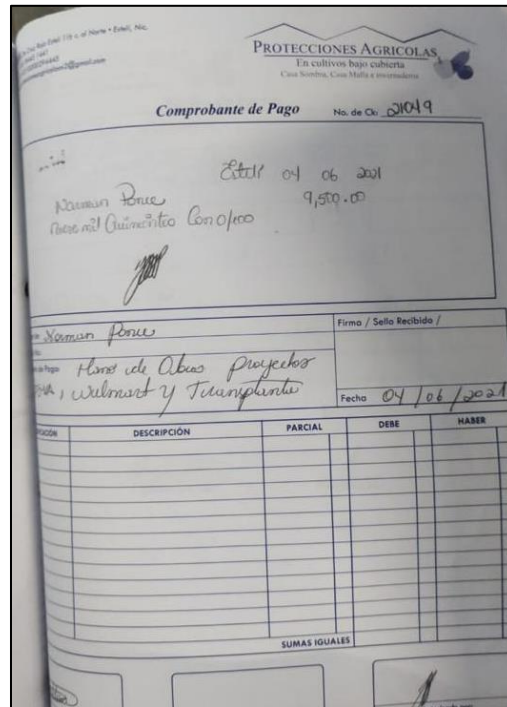 al Norte • Estelí, Nic.
@gmail.com
PROTECCIONES AGRICOLAS
En cultivos bajo cubierta
Casa Sombra, Casa Malla e invernaderos
Comprobante de Pago No. de Ck: 21049
Estelí 04 06 2021
Norman Ponce 9,500.00
Nueve mil Quinientos Con 0/100
Norman Ponce
Firma / Sello Recibido /
Mano de Obra Proyectos
, Walmart y Transplante
Fecha 04 / 06 / 2021
DESCRIPCIÓN PARCIAL DEBE HABER
SUMAS IGUALES